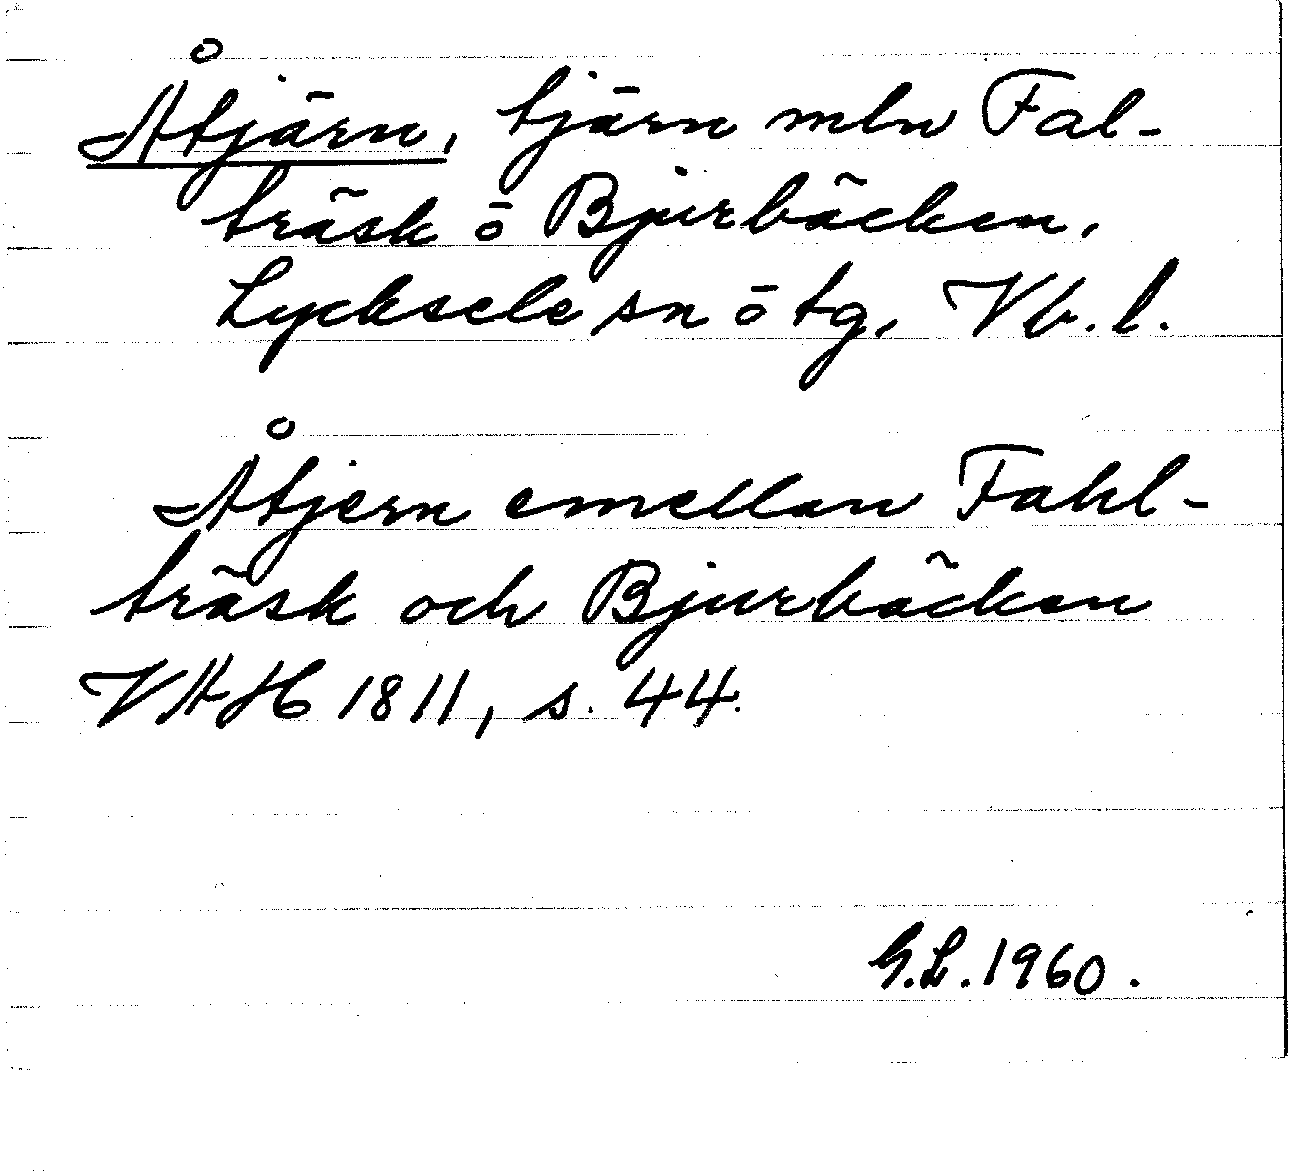 Åtjärn, tjärn mln Fal-
träsk o Bjurbäcken.
Lycksele sn o tg, Vb. l.
Åtjern emellan Fahl-
träsk och Bjurbäcken
VAH 1811, s. 44.
G.L. 1960.